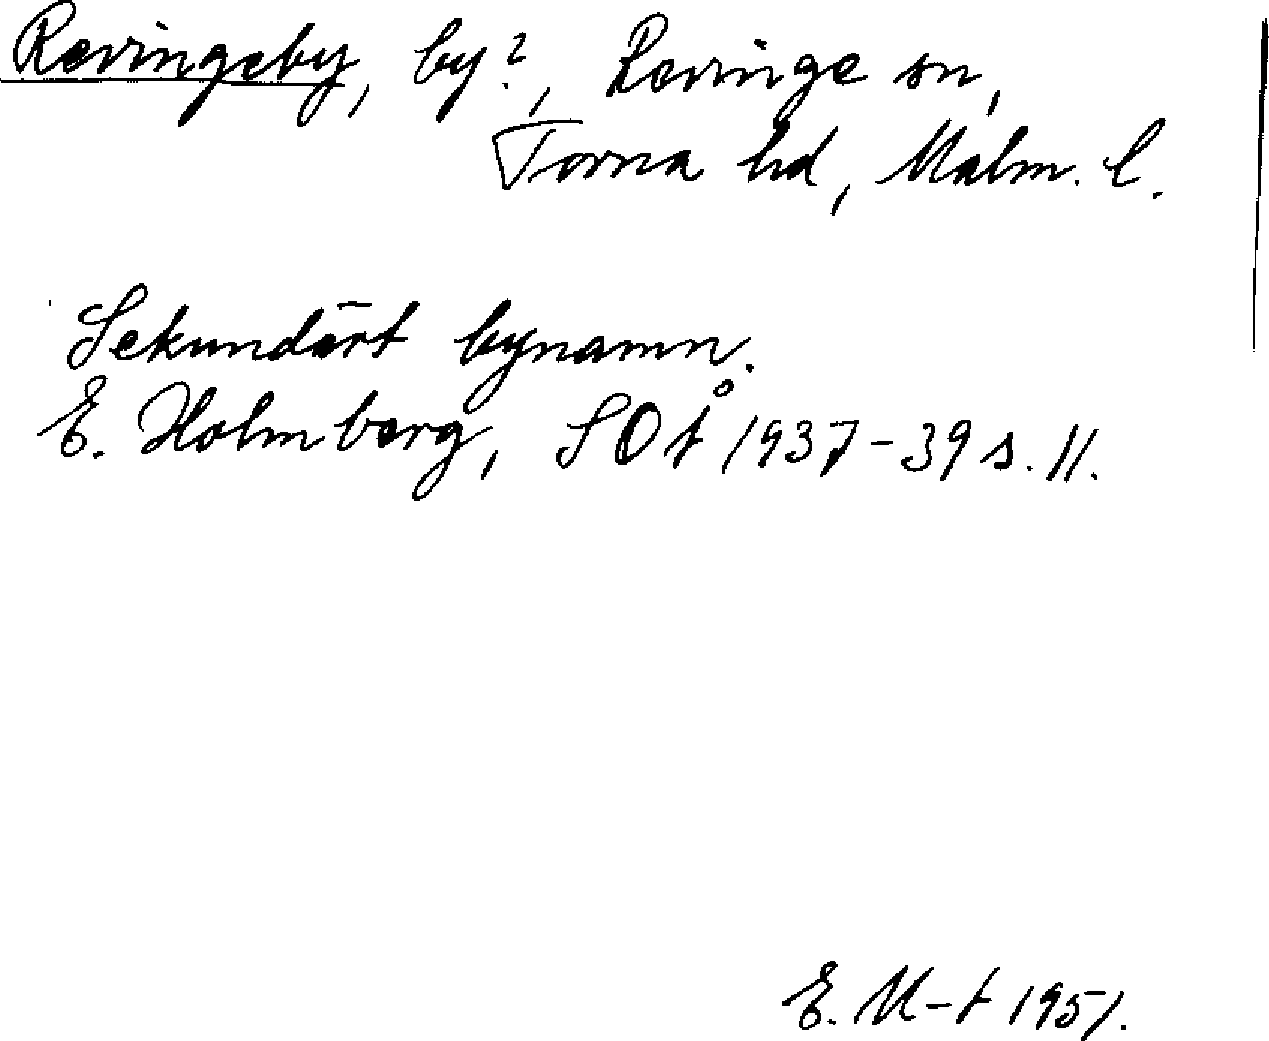 Revingeby, by?, Revinge sn,
Torna hd, Malm. l.
Sekundärt bynamn.
E. Holmberg, SOÅ 1937-39 s. 11.
E. M-t 1951.